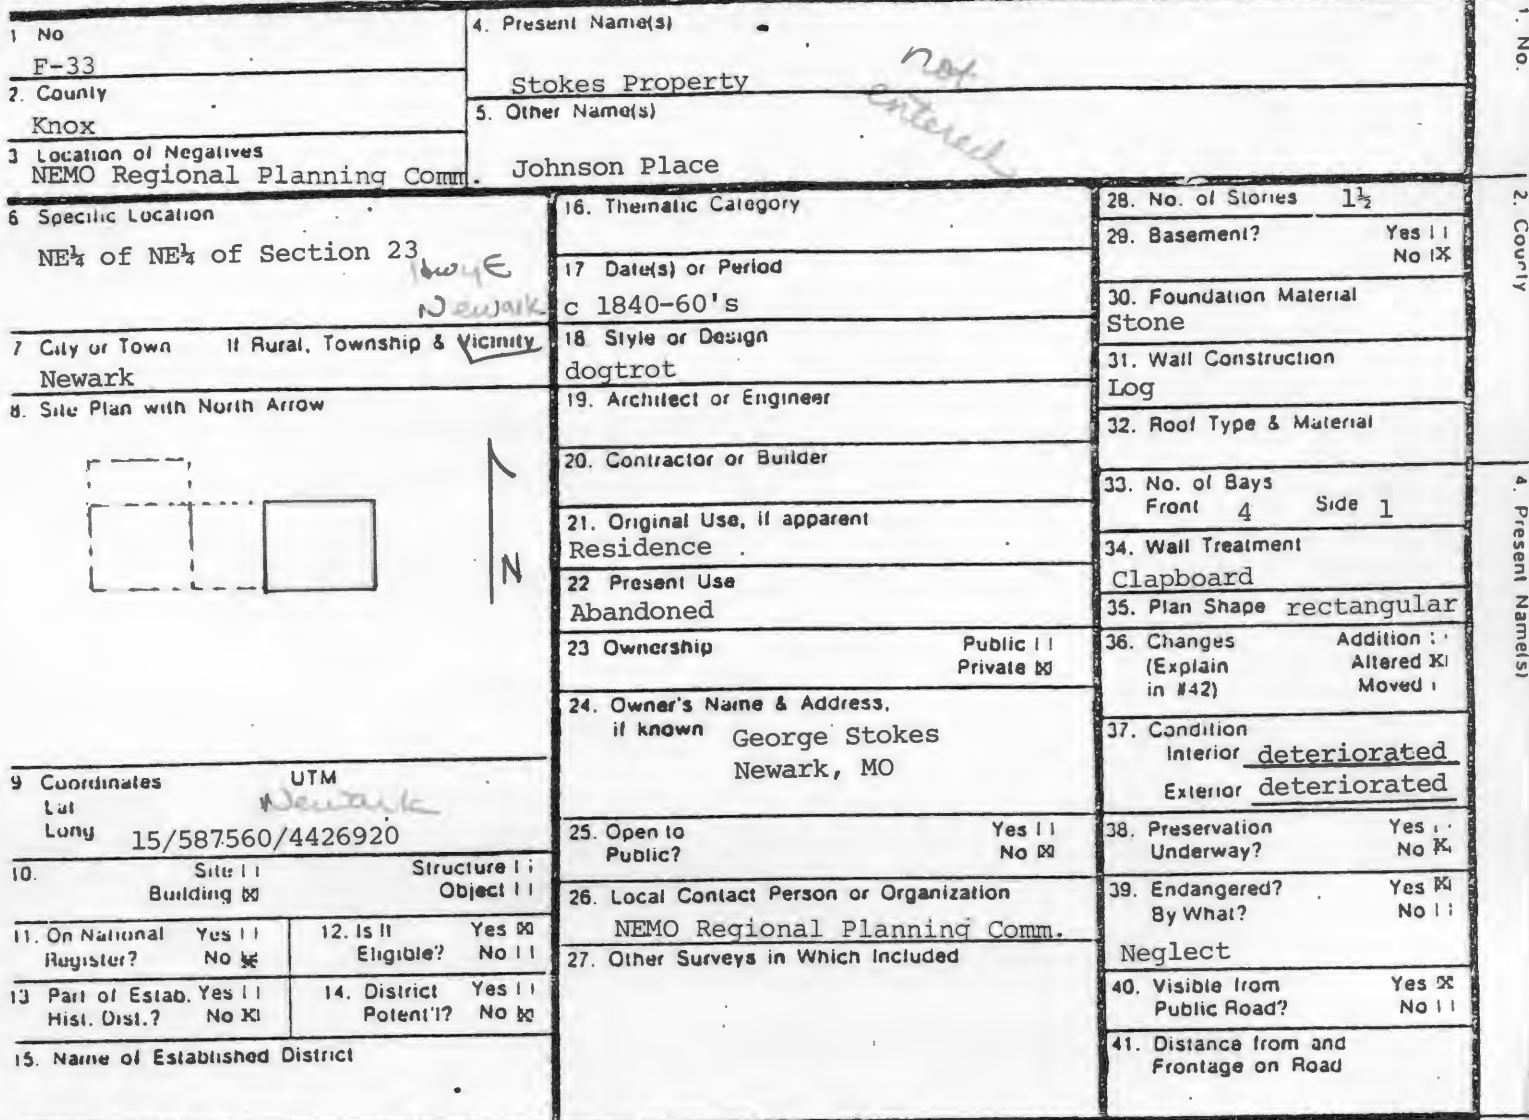 1 No
F-33
2. County
Knox
3 Location of Negatives
NEMO Regional Planning Comm.
4. Present Name(s)
Stokes Property
5. Other Name(s)
Johnson Place
not
entered
6 Specific Location
NE¼ of NE¼ of Section 23
Hwy E
Newark
7 City or Town If Rural, Township & Vicinity
Newark
8. Site Plan with North Arrow
N
9 Coordinates UTM
Lat
Newark
Long 15/587560/4426920
10. Site Structure
Building X Object
11. On National Yes
Register? No X
12. Is It Yes X
Eligible? No
13 Part of Estab. Yes
Hist. Dist.? No X
14. District Yes
Potent'l? No X
15. Name of Established District
16. Thematic Category
17 Date(s) or Period
c 1840-60's
18 Style or Design
dogtrot
19. Architect or Engineer
20. Contractor or Builder
21. Original Use, if apparent
Residence
22 Present Use
Abandoned
23 Ownership Public
Private X
24. Owner's Name & Address,
if known George Stokes
Newark, MO
25. Open to Yes
Public? No X
26. Local Contact Person or Organization
NEMO Regional Planning Comm.
27. Other Surveys in Which Included
28. No. of Stories 1½
29. Basement? Yes
No X
30. Foundation Material
Stone
31. Wall Construction
Log
32. Roof Type & Material
33. No. of Bays
Front 4 Side 1
34. Wall Treatment
Clapboard
35. Plan Shape rectangular
36. Changes Addition
(Explain Altered X
in #42) Moved
37. Condition
Interior deteriorated
Exterior deteriorated
38. Preservation Yes
Underway? No X
39. Endangered? Yes X
By What? No
Neglect
40. Visible from Yes X
Public Road? No
41. Distance from and
Frontage on Road
1. No.
2. County
4. Present Name(s)